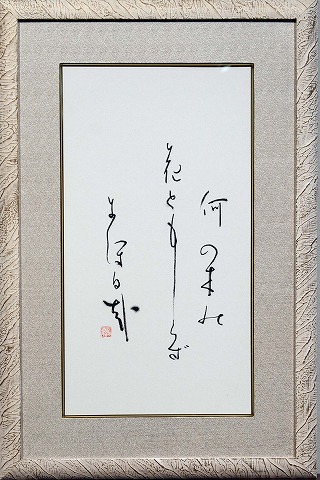 何の木の
花ともしらず
にほひ哉